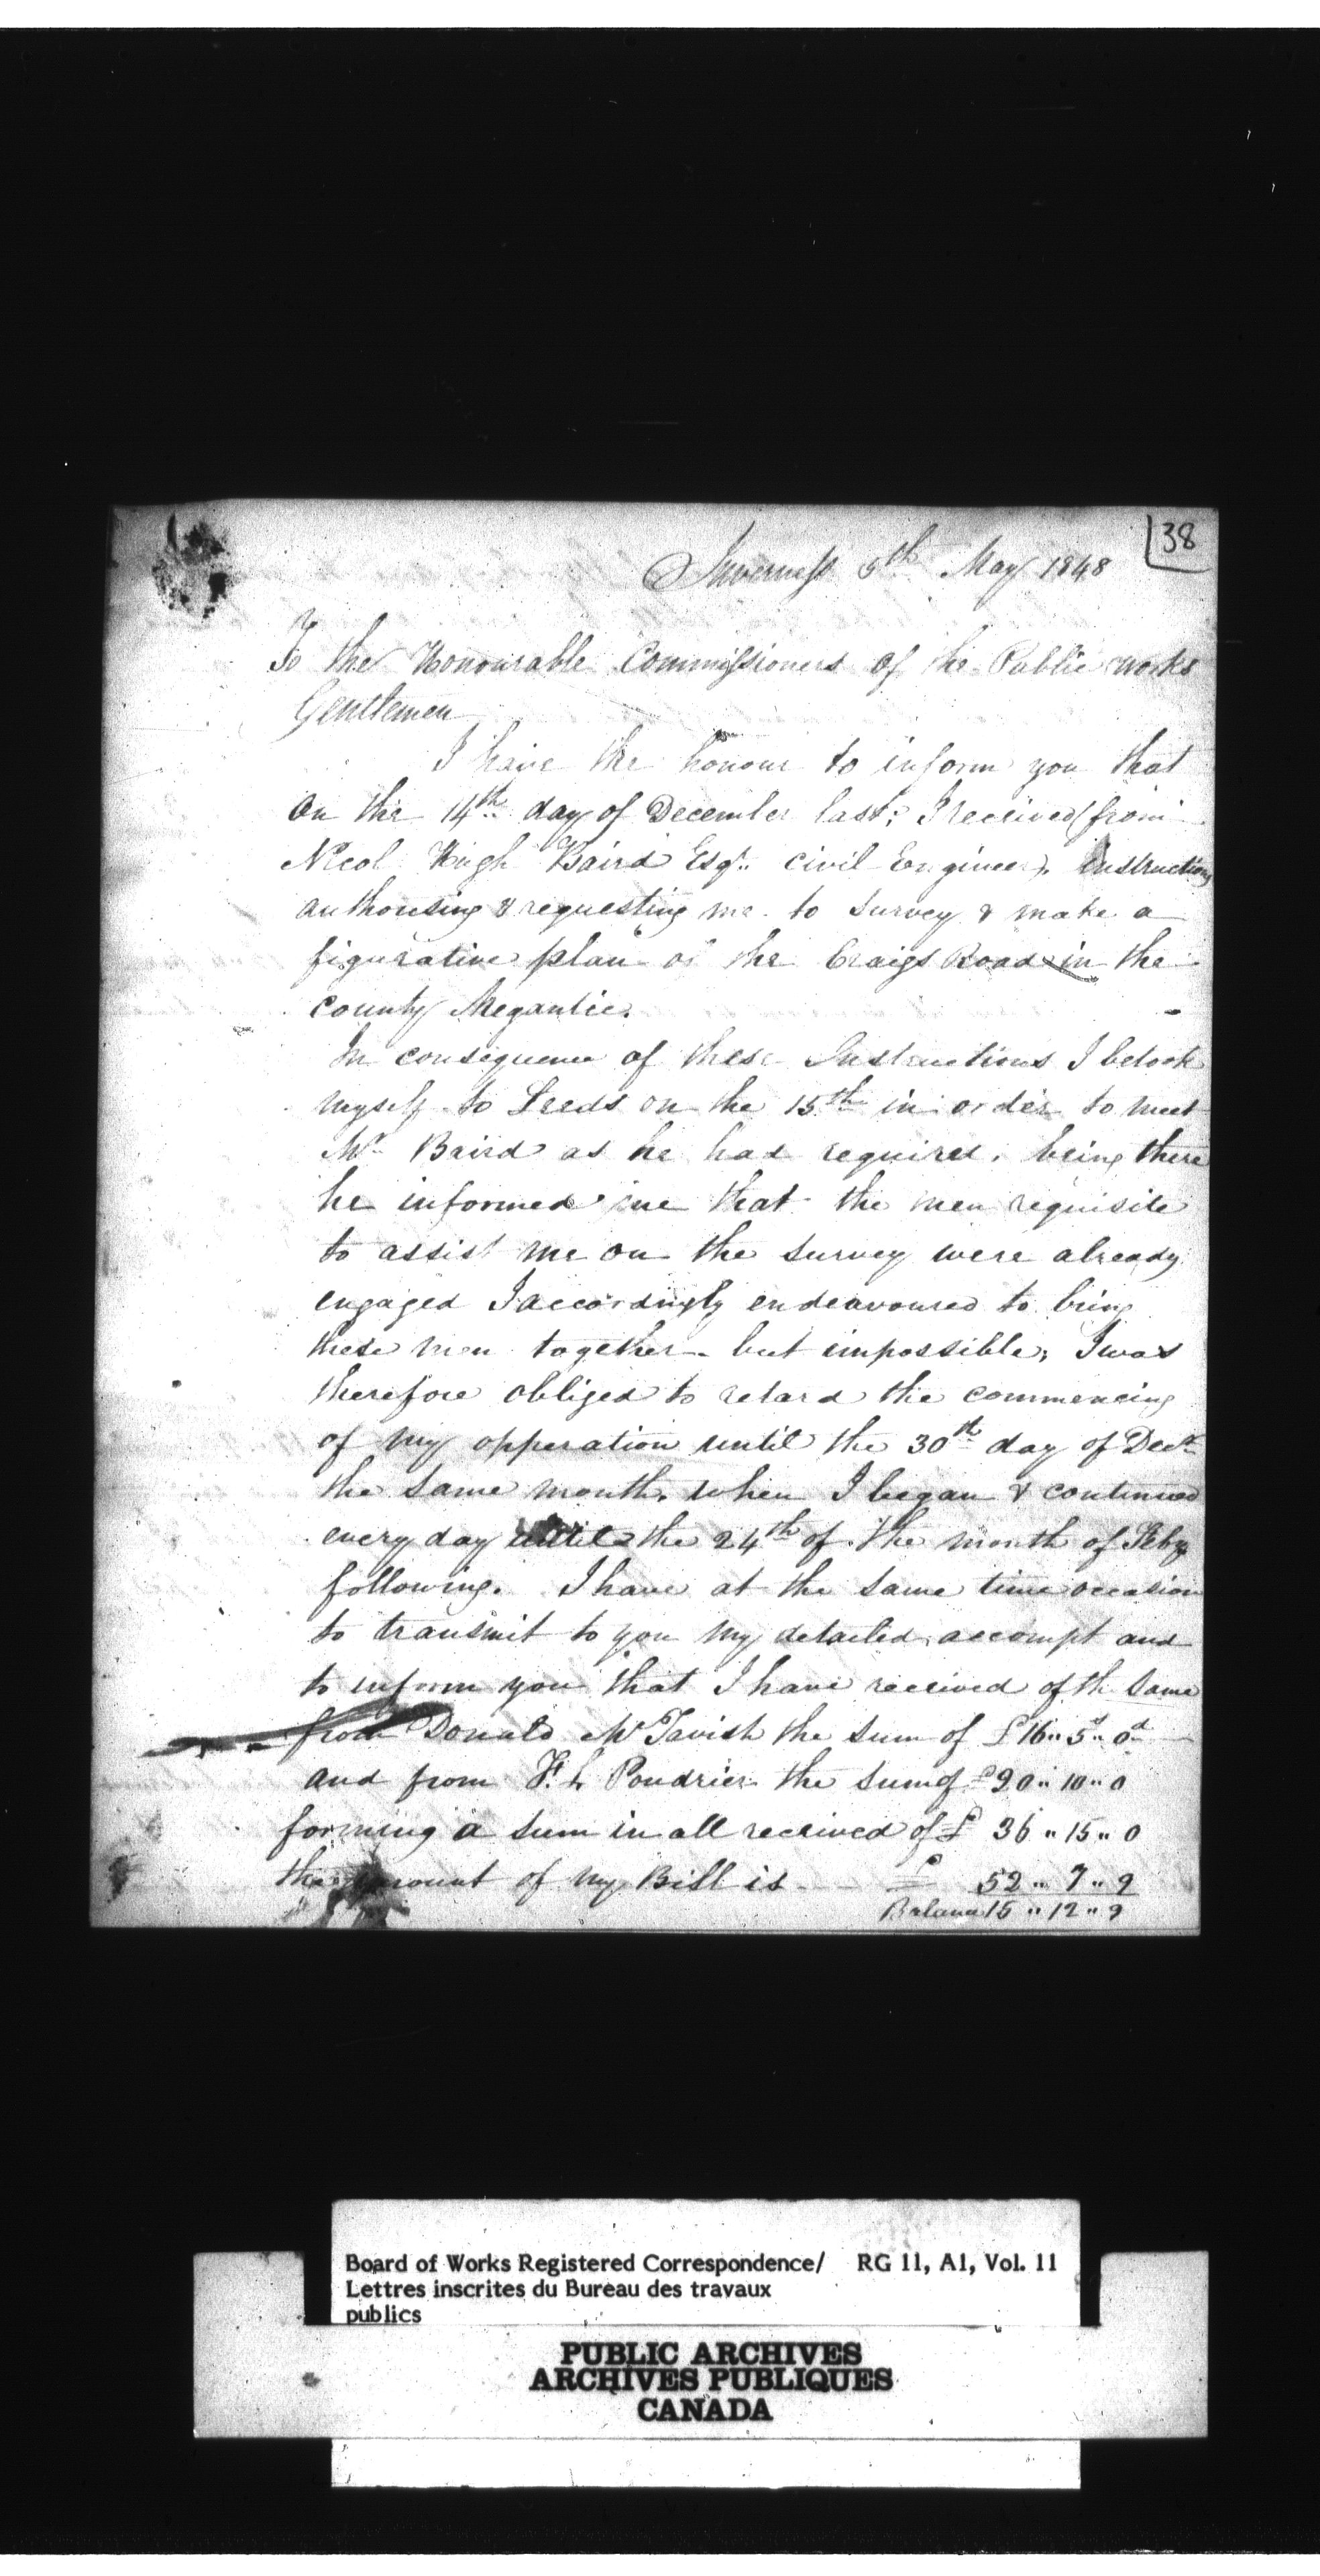 38
Inverness 5th May 1848
To the Honourable Commissioners of the Public works
Gentlemen
I have the honour to inform you that
on the 14th day of December last; I received from
Nicol Hugh Baird Esqr. civil Engineer, instructions
authorising & requesting me to survey & make a
figurative plan of the Craigs Road in the
county Megantic.
In consequence of these Instructions I betook
myself to Leeds on the 15th in order to meet
Mr Baird as he had required, being there
he informed me that the men requisite
to assist me on the survey were already
engaged I accordingly endeavoured to bring
these men together - but impossible; I was
therefore obliged to retard the commencing
of my opperation until the 30th day of Decr
the same month, when I began & continued
every day until the 24th of the month of Feby
following. I have at the same time occasion
to transmit to you my detailed accompt and
to inform you that I have received of the same
from Donald McTavish the sum of £16 " 5s " 0d
and from F. L Poudrier the sum of £20 " 10 " 0
forming a sum in all received of £ 36 " 15 " 0
the amount of my Bill is £ 52 " 7 " 9
Balance 15 " 12 " 9
Board of Works Registered Correspondence/ RG 11, A1, Vol. 11
Lettres inscrites du Bureau des travaux
publics
PUBLIC ARCHIVES
ARCHIVES PUBLIQUES
CANADA